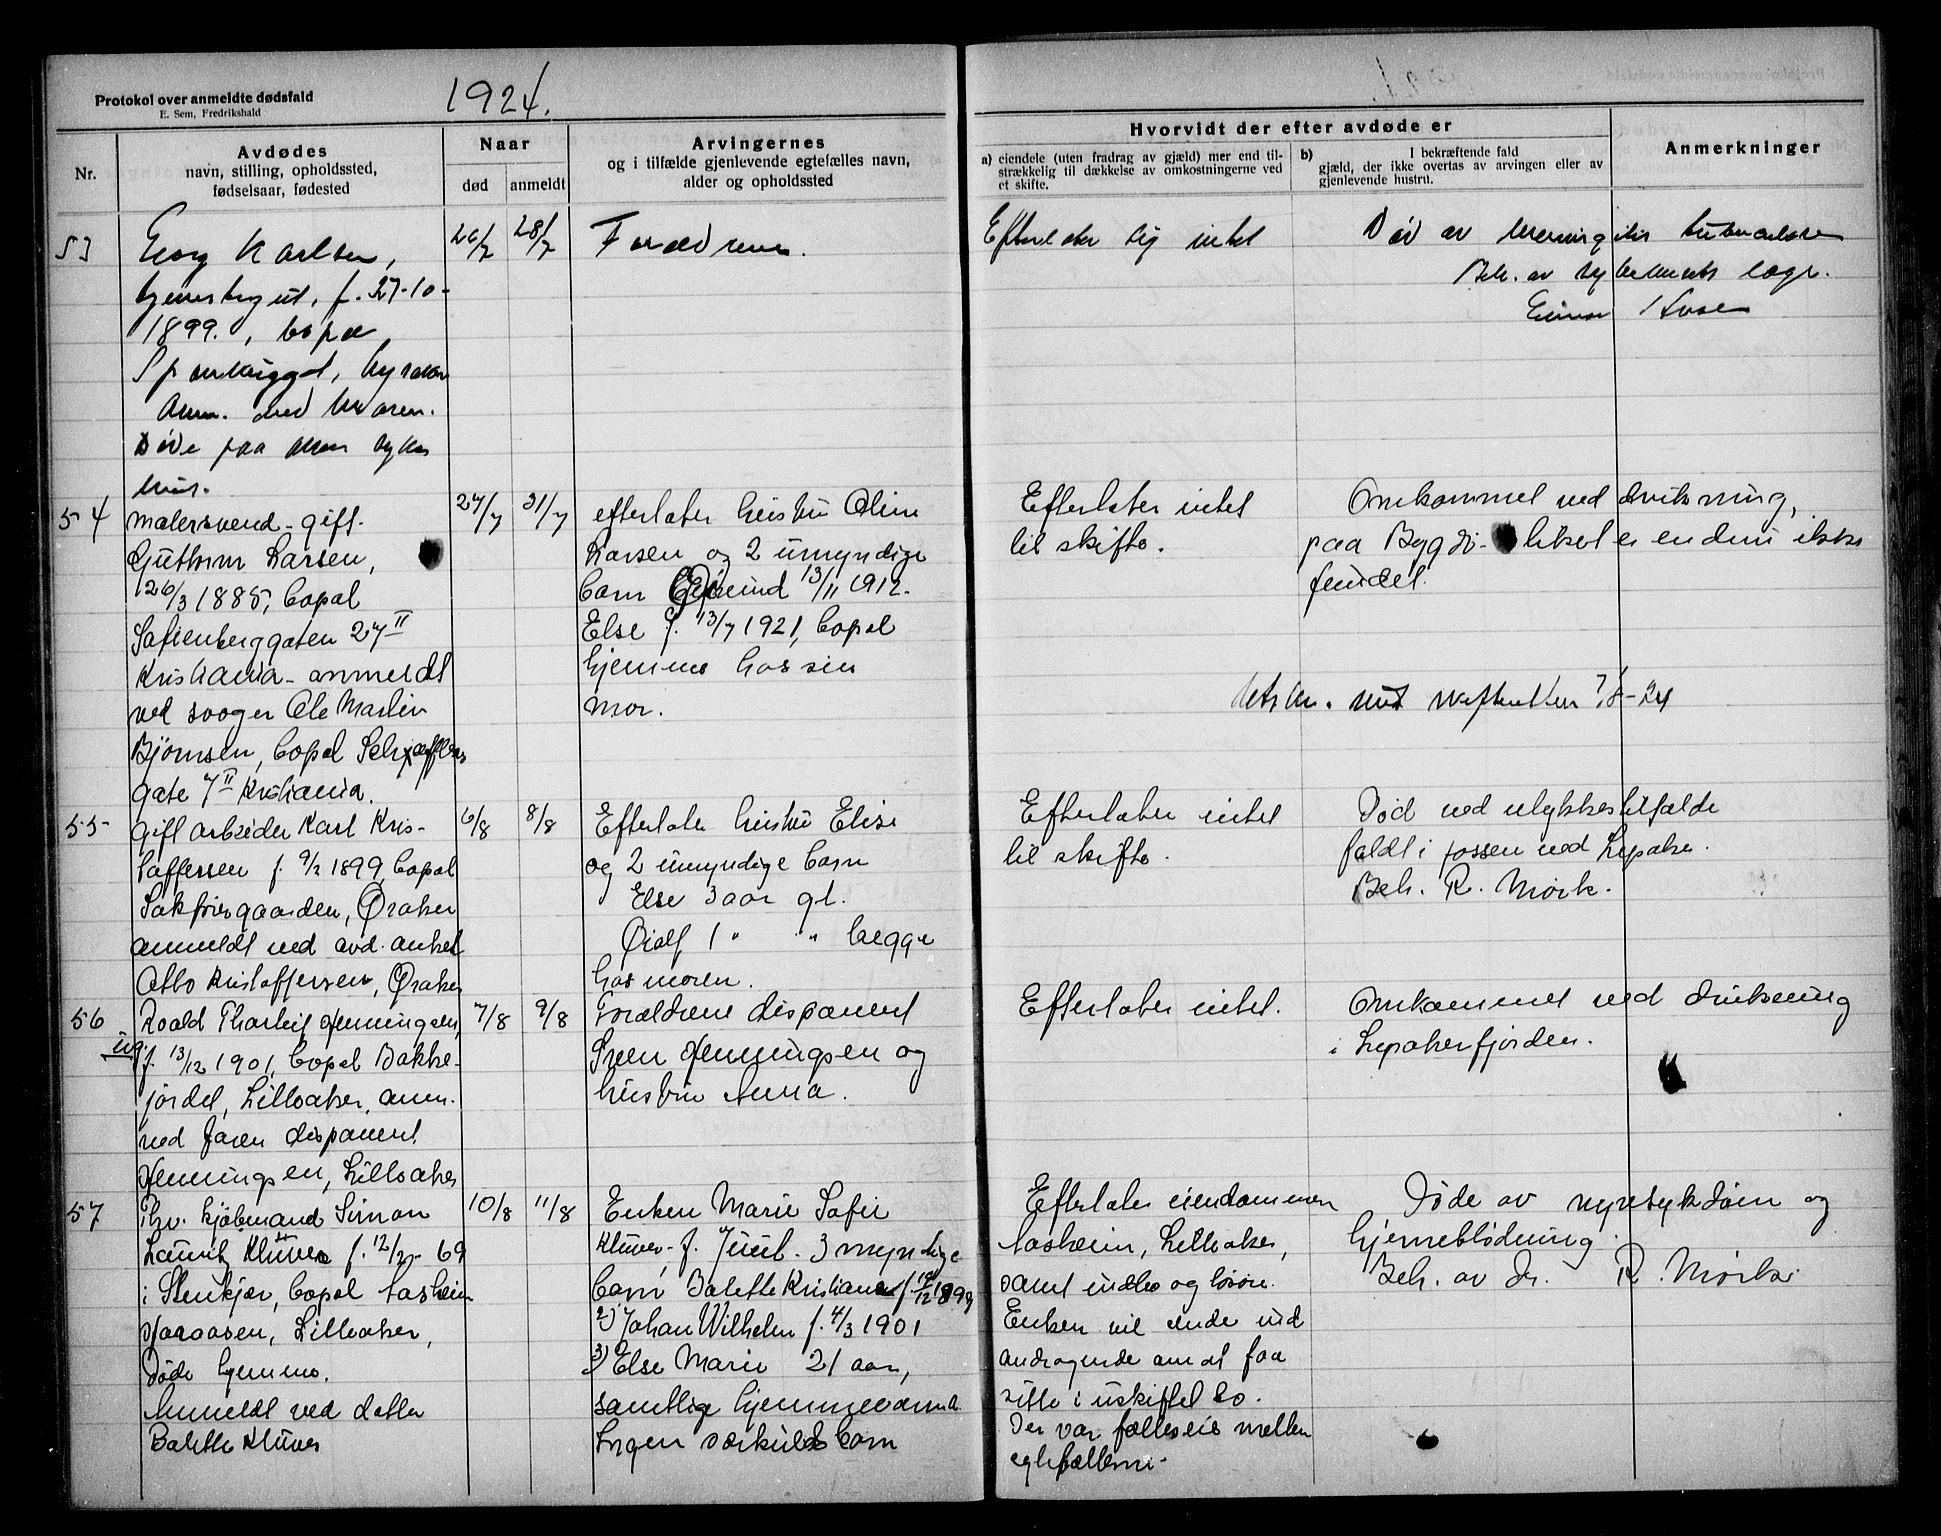 Protokol over anmeldte dødsfald
E. Sem, Fredrikshald
1924.
Nr.
Avdødes
navn, stilling, opholdssted,
fødselsaar, fødested
Naar
død
anmeldt
Arvingernes
og i tilfælde gjenlevende egtefælles navn,
alder og opholdssted
Hvorvidt der efter avdøde er
a) eiendele (uten fradrag av gjæld) mer end til-
strækkelig til dækkelse av omkostningerne ved
et skifte.
b) I bekræftende fald
gjæld, der ikke overtas av arvingen eller av
gjenlevende hustru.
Anmerkninger
53
Karlsen,
f. 27-10-
1899., bopæl
Anm. ved Moren.
Døde paa syke
hus.
26/7
28/7
Forældrene.
Efterlater sig intet
Død av meningitis
Beh. av sykehusets læge.
54
malersvend - gift.
Guthorm Larsen,
f 26/3 1885, bopæl
Sofienberggaten 27 II
Kristiania - anmeldt
ved svoger Ole Martin
Bjørnsen, bopæl
gate 7 II Kristiania.
27/7
31/7
efterlater hustru Oline
Larsen og 2 umyndige
barn Øivind 13/11 1912.
Else f. 13/7 1921, bopæl
hjemme hos sin
mor.
Efterlater intet
til skifte.
Omkommet ved drukning,
paa Bygdø - liket er endnu ikke
fundet.
skifteretten 7/8-24
55
gift arbeider Karl Kris-
toffersen f. 9/2 1899, bopæl
Sakførergaarden, Øraker
anmeldt ved avd. onkel
Otto Kristoffersen, Øraker
6/8
8/8
Efterlater hustru Elise
og 2 umyndige barn
Else 3 aar gl.
1 " " begge
hos moren.
Efterlater intet
til skifte.
Død ved ulykkestilfælde
faldt i fossen ved Lysaker.
Beh. R. Mørk.
56
ug.
Roald Thorleif Henningsen,
f. 13/12 1901, bopæl Bakke-
jordet, Lilleaker, anm.
ved faren disponent
Henningsen, Lilleaker
7/8
9/8
Forældrene disponent
Sven Henningsen og
hustru Anna.
Efterlater intet.
Omkommet ved drukning
i Lysakerfjorden.
57
fhv. kjøbmand Simon
Lauritz Klüver f. 12/2-69
i Stenkjær, bopæl Aasheim
Lilleaker,
Døde hjemme.
Anmeldt ved datter
Bolette Klüver
10/8
11/8
Enken Marie Sofie
Klüver f. Juul. 3 myndige
barn Bolette Kristiane f. 19/12 1899
2) Johan Wilhelm f. 4/3 1901
3) Else Marie 21 aar,
samtlige hjemmeværende
Ingen særkulds barn
Efterlater eiendommen
Aasheim, Lilleaker,
samt indbo og løsøre.
Enken vil sende ind
andragende om at faa
sitte i uskiftet bo.
Der var fælleseie mellem
egtefællerne.
Døde av nyresykdom og
hjerneblødning.
Beh. av dr. R. Mørk.